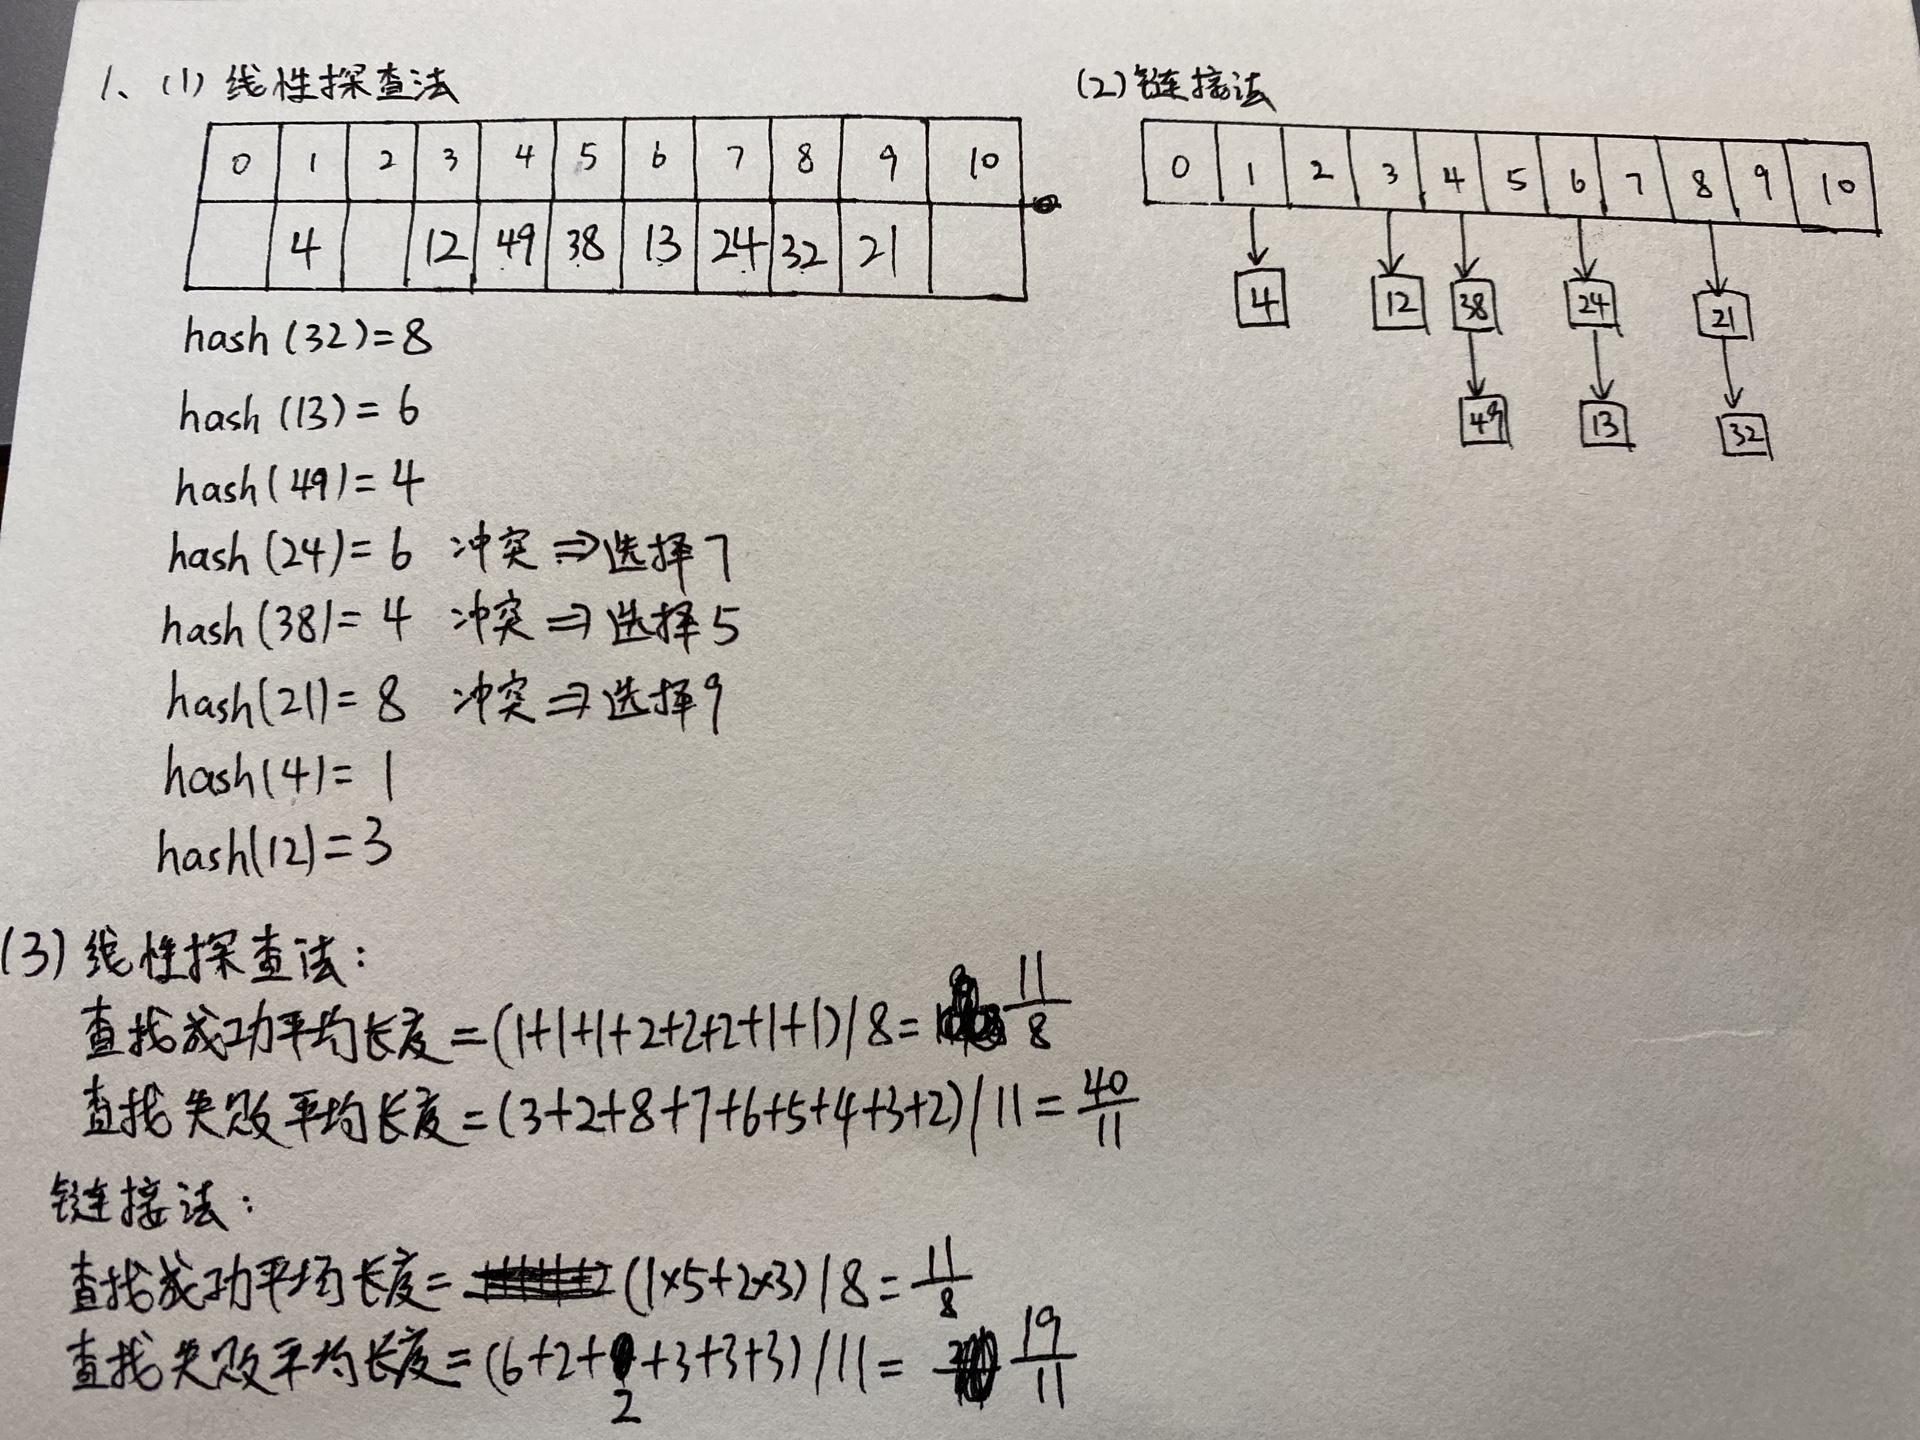 1、(1) 线性探查法
0 1 2 3 4 5 6 7 8 9 10
4 12 49 38 13 24 32 21
hash(32)=8
hash(13)=6
hash(49)=4
hash(24)=6 冲突⇒选择7
hash(38)=4 冲突⇒选择5
hash(21)=8 冲突⇒选择9
hash(4)=1
hash(12)=3
(2)链接法
0 1 2 3 4 5 6 7 8 9 10
4 12 38 24 21
49 13 32
(3) 线性探查法:
查找成功平均长度=(1+1+1+2+2+2+1+1)/8= 11/8
查找失败平均长度=(3+2+8+7+6+5+4+3+2)/11=40/11
链接法:
查找成功平均长度= (1×5+2×3)/8=11/8
查找失败平均长度=(6+2+2+3+3+3)/11= 19/11